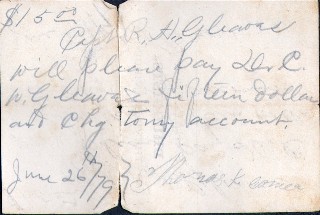 $15 00
Capt R. H. Gleaves
will please pay Dr. C.
W. Gleaves fifteen Dollars
and Chg to my account.
June 26th /79
Thomas K.